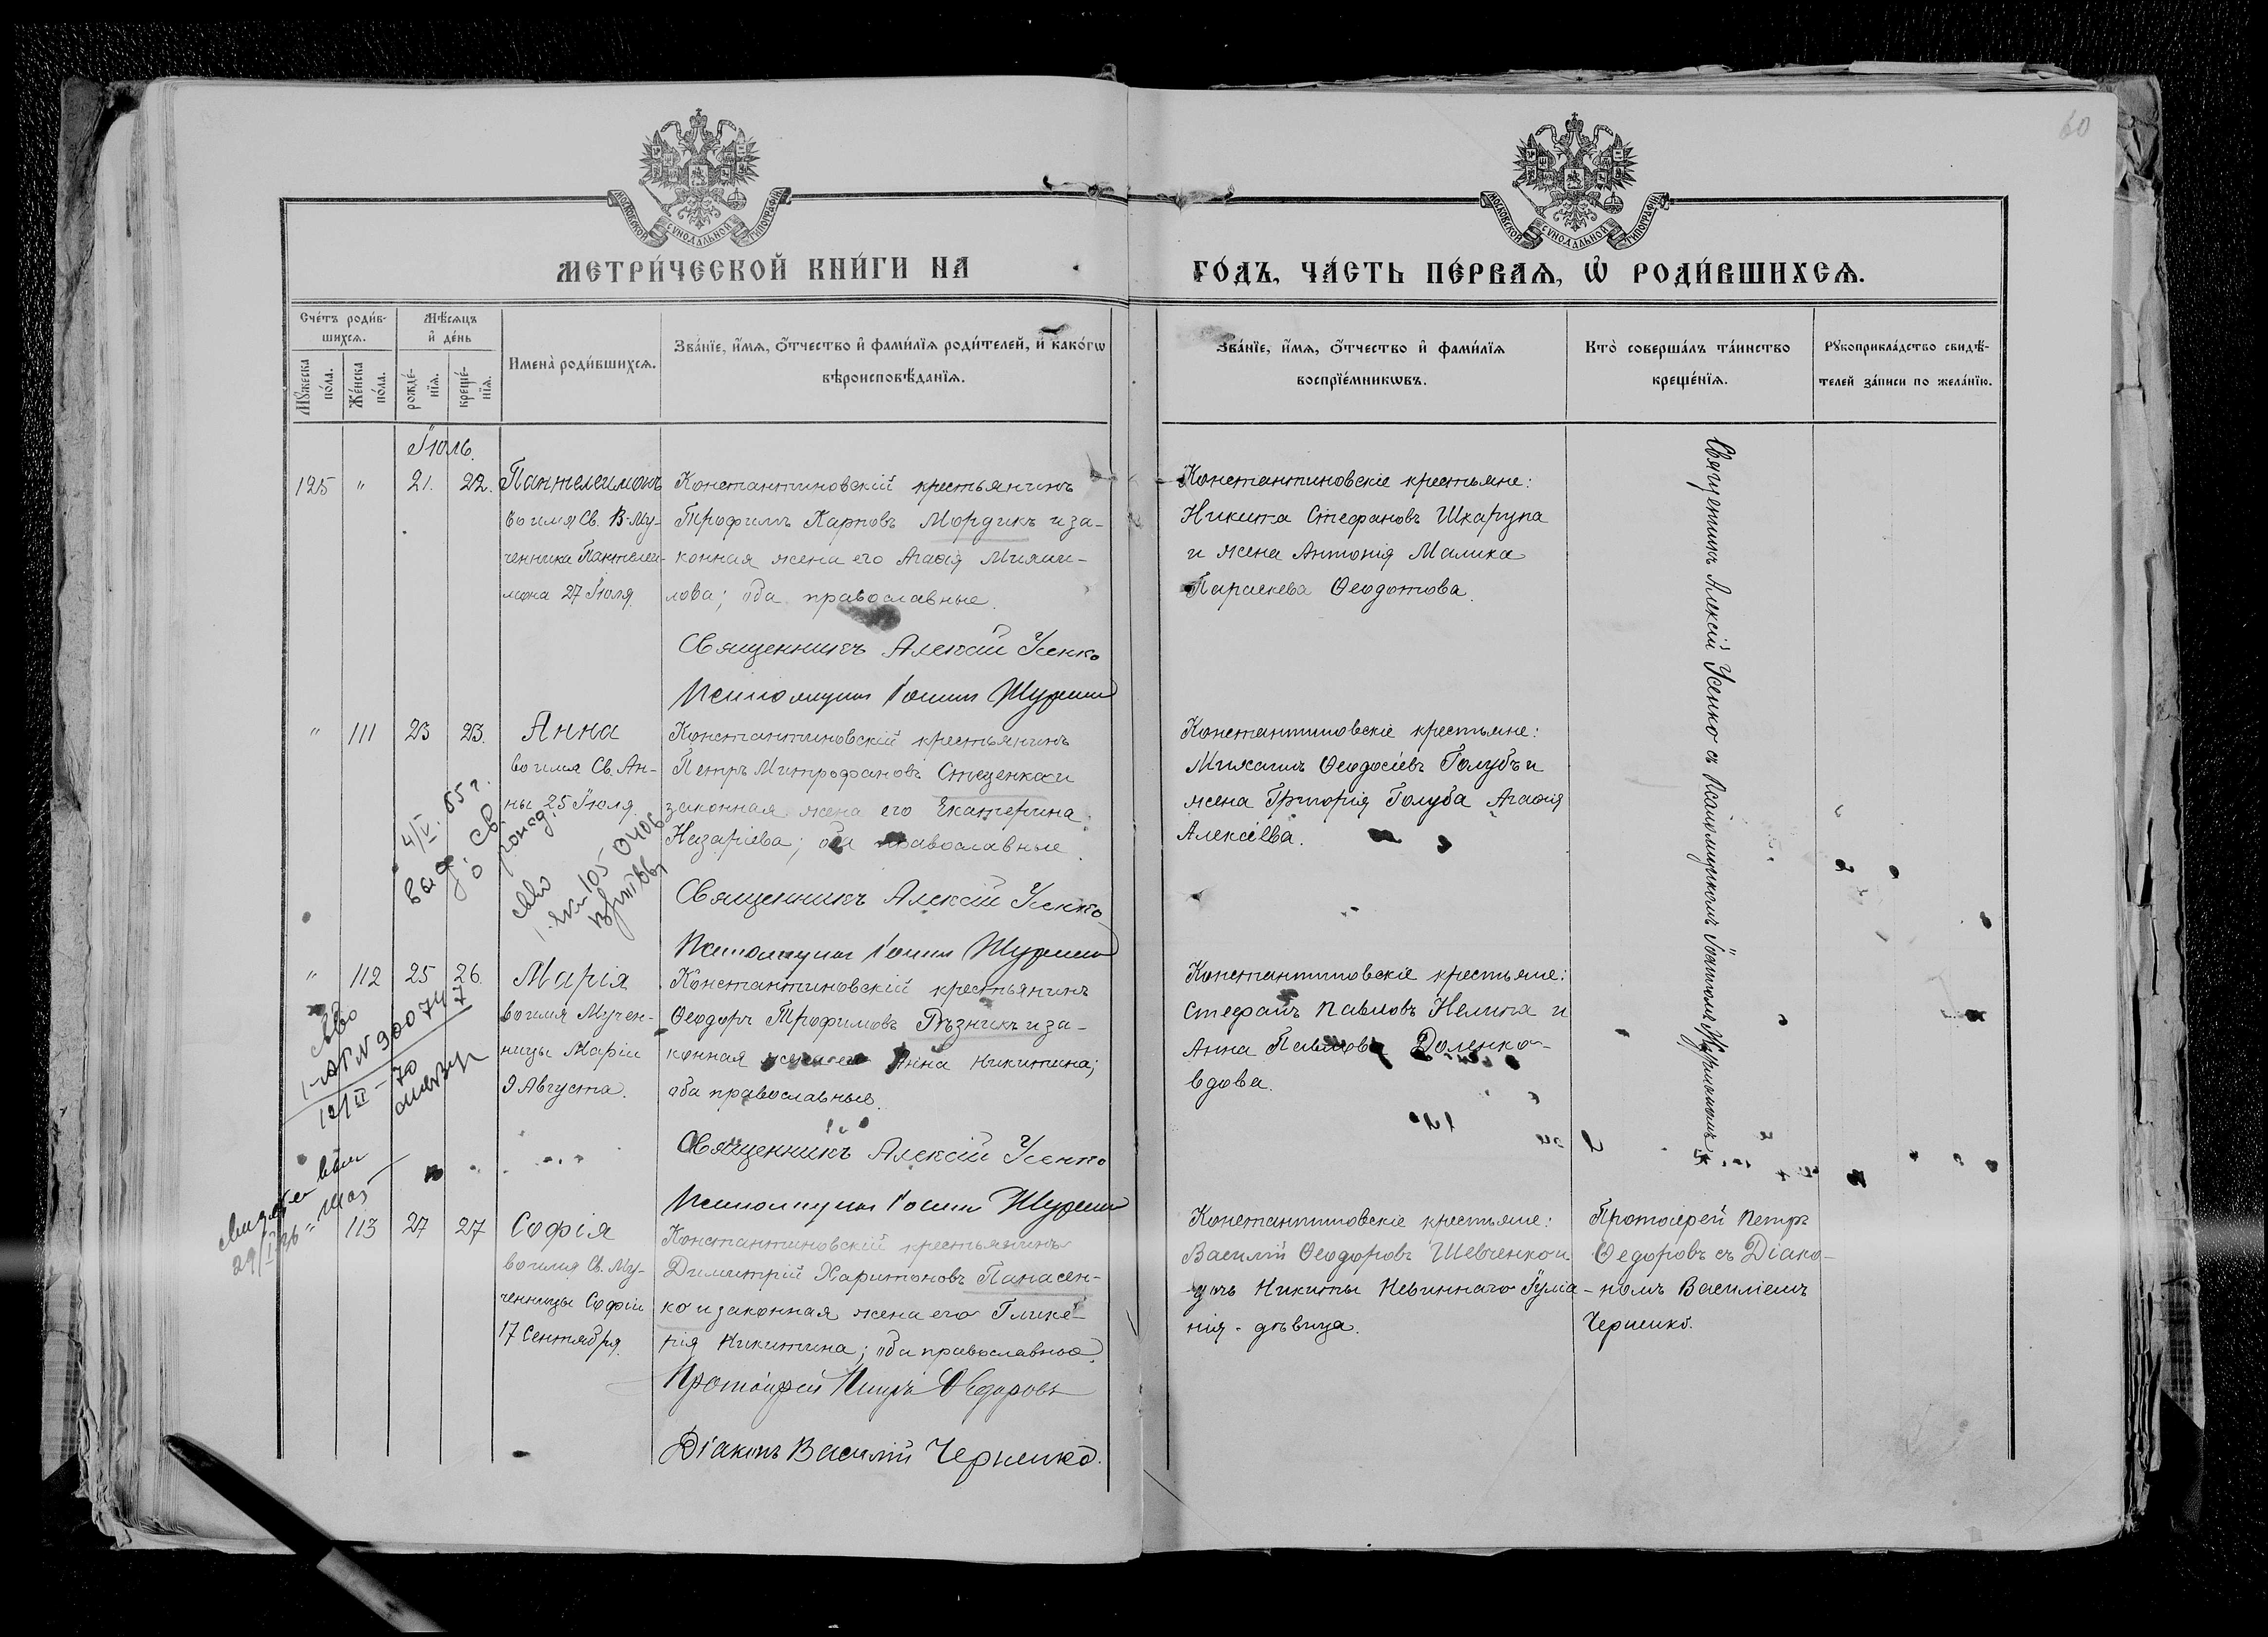 60
МОСКОВСКОЙ СѴНОДАЛЬНОЙ ТИПОГРАФІИ
МОСКОВСКОЙ СѴНОДАЛЬНОЙ ТИПОГРАФІИ
МЕТРИ́ЧЕСКОЙ КНИ́ГИ НА
ГО́ДЪ, ЧА́СТЬ ПЕ́РВАѦ, Ѽ РОДИ́ВШИХСѦ.
Сче́тъ роди́в-
шихсѧ.
Мꙋ́жеска
по́ла.
Же́нска
по́ла.
Мѣ́сѧцъ
и҆ де́нь
рожде́-
нїѧ.
креще́-
нїѧ.
И҆мена̀ роди́вшихсѧ.
Зва́нїе, и҆́мѧ, ѻ҆́тчество и҆ фами́лїѧ роди́телей, и҆ како́гѡ
вѣроисповѣ́данїѧ.
Зва́нїе, и҆́мѧ, ѻ҆́тчество и҆ фами́лїѧ
воспрїе́мникѡвъ.
Кто̀ соверша́лъ та́инство
креще́нїѧ.
Рꙋкоприкла́дство свидѣ́-
телей за́писи по жела́нїю.
Іюль.
125 " 21. 22. Пантелеимонъ
во имя Св. В-Му-
ченника Пантелеи-
мона 27 Іюля.
Константиновскій крестьянинъ
Трофимъ Карповъ Мордикъ и за-
конная жена его Агаѳія Михаи-
лова; оба православные.
Священникъ Алексій Усенко
Константиновскіе крестьяне:
Никита Стефановъ Шкарупа
и жена Антонія Малика
Параскева Ѳеодотова.
Священникъ Алексій Усенко съ Псаломщикомъ
" 111 23 23. Анна
во имя Св. Ан-
ны 25 Іюля
Константиновскій крестьянинъ
Петръ Митрофановъ Стеценко и
законная жена его Екатерина
Назаріева; оба православные.
Священникъ Алексій Усенко
Константиновскіе крестьяне:
Михаилъ Ѳеодосіевъ Голубъ и
жена Григорія Голуба Агаѳія
Алексіева.
4/V. 55 г.
" 112 25 26. Марія
во имя Мучен-
ницы Маріи
9 Августа.
Константиновскій крестьянинъ
Ѳеодоръ Трофимовъ Рѣзникъ и за-
конная жена его Анна Никитина;
оба православные.
Священникъ Алексій Усенко
Константиновскіе крестьяне:
Стефанъ Павловъ Нелипа и
Анна Павлова Доленко-
вдова.
" 113 27 27 Софія
во имя Св. Му-
ченницы Софіи
17 Сентября.
Константиновскій крестьянинъ
Димитрій Харитоновъ Панасен-
ко и законная жена его Глике-
рія Никитина; оба православные.
Протоіерей Петръ Ѳедоровъ
Діаконъ Василій Черненко.
Константиновскіе крестьяне:
Василій Ѳеодоровъ Шевченко и
дочь Никиты Невиннаго Іуліа-
нія - дѣвица.
Протоіерей Петръ
Ѳедоровъ съ Діако-
номъ Василіемъ
Черненко.